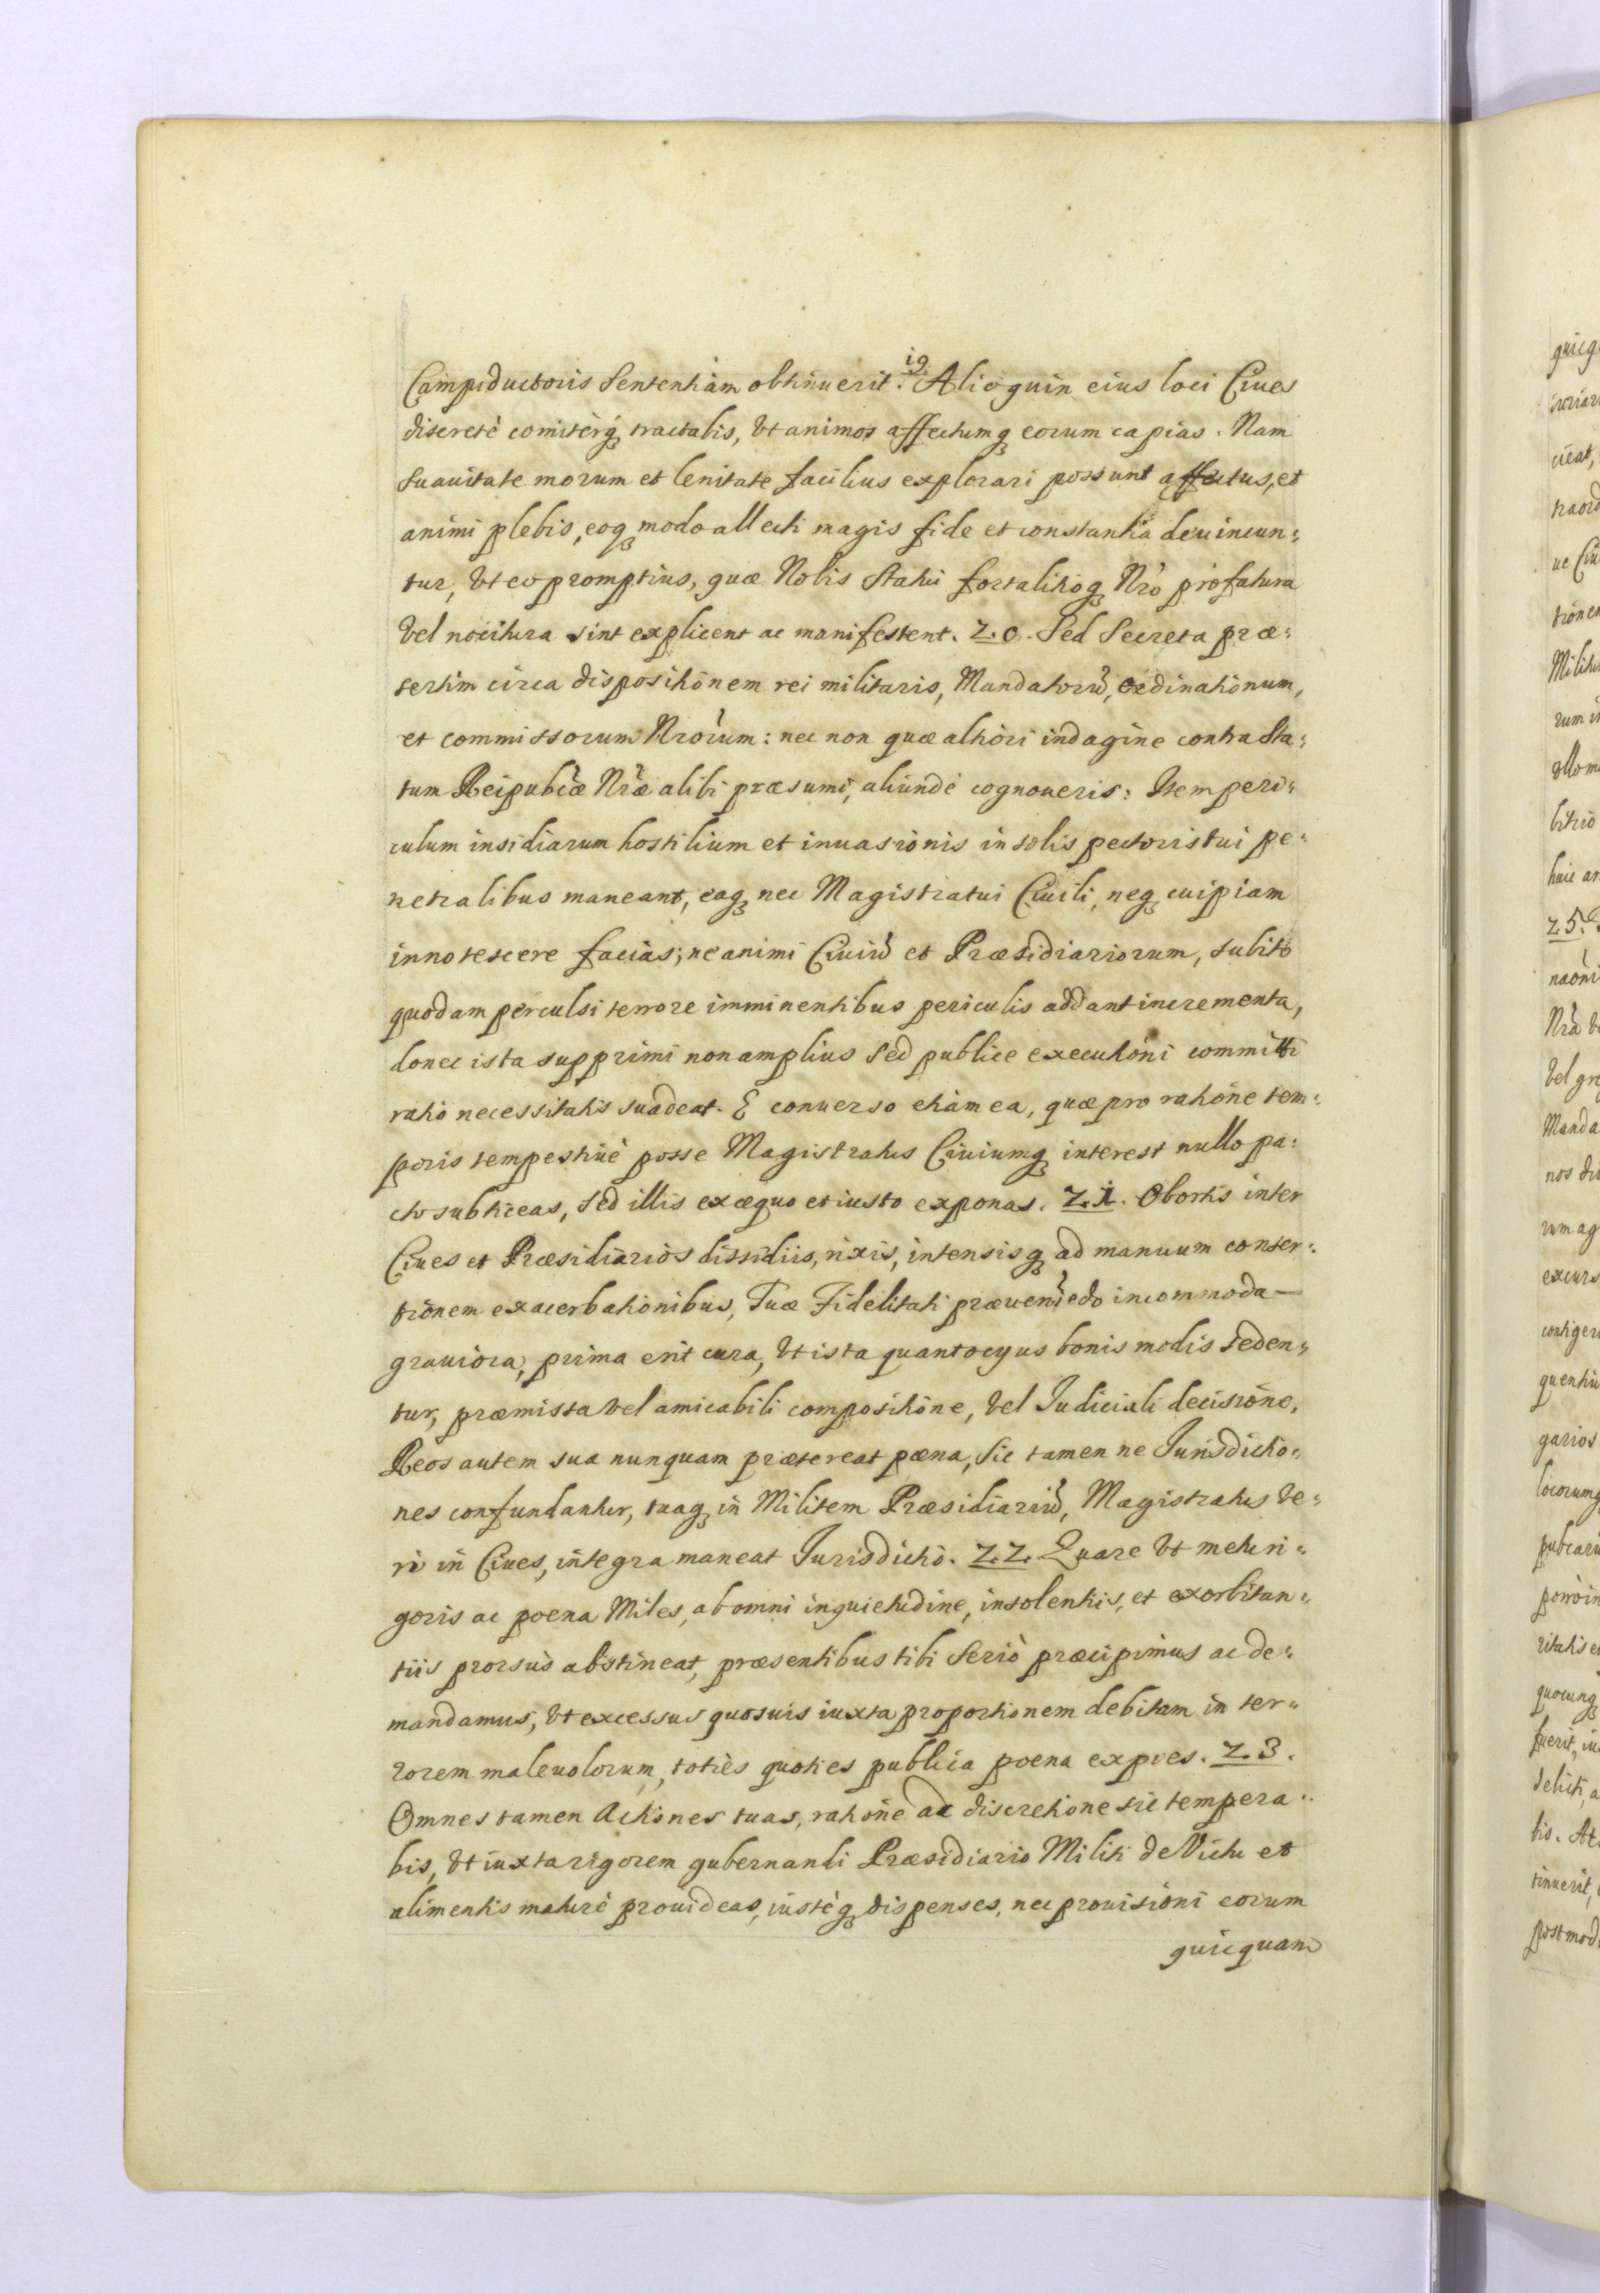 Campiductoris Sententiam obtinuerit. 19. Alioquin eius loci Ciues
discretè comiterq₃ tractabis, Vt animos affectumq₃ eorum capias. Nam
suauitate morum et lenitate facilius explorari possunt affectus, et
animi plebis, eoq₃ modo allecti magis fide et constantia deuincun:
tur, Vt eo promptius, quæ Nobis Statui fortalitioq₃ Nro profutura
Vel nocitura sint explicent ac manifestent. 2.0. Sed Secreta præ:
sertim circa dispositionem rei militaris, Mandatorũ, Ordinationum,
et commissorum Nrorum: nec non quæ altiori indagine contra Sta:
tum Reipubcæ Nræ alibi præsumi, aliunde cognoueris: Item peri:
culum insidiarum hostilium et inuasionis in solis pectoris tui pe:
netralibus maneant, eaq₃ nec Magistratui Ciuili, neq₃ cuipiam
innotescere facias; ne animi Ciuiũ et Præsidiariorum, subito
quodam perculsi terrore imminentibus periculis addant incrementa,
donec ista supprimi non amplius sed publice executioni committi
ratio necessitatis suadeat. E conuerso etiam ea, quæ pro ratione tem:
poris tempestiuè posse Magistratus Ciuiumq₃ interest nullo pa:
cto subticeas, sed illis ex æquo et iusto exponas. 2.1. Obortis inter
Ciues et Præsidiarios dissidiis, rixis, intensisq₃ ad manuum conser:
tionem exacerbationibus, Tuæ Fidelitati præueniedo incommoda
grauiora, prima erit cura, Vt ista quantocyus bonis modis seden:
tur, præmissa Vel amicabili compositione, Vel Iudiciali decisione,
Reos autem sua nunquam prætereat pæna, Sic tamen ne Jurisdictio:
nes confundantur, tuaq₃ in Militem Præsidiariũ, Magistratus Ve:
rò in Ciues, integra maneat Jurisdictio. 2.2. Quare Vt metu ri:
goris ac poena Miles, ab omni inquietudine, insolentiis, et exorbitan:
tiis prorsus abstineat, præsentibus tibi Seriò præcipimus ac de:
mandamus, Vt excessus quosuis iuxta proportionem debitam in ter:
rorem maleuolorum, toties quoties publica poena expies. 2.3.
Omnes tamen Actiones tuas, ratione ac discretione sic tempera:
bis, Vt iuxta rigorem gubernandi Præsidiario Militi de Victu et
alimentis maturè prouideas, iustèq₃ dispenses, nec prouisioni eorum
quicquam